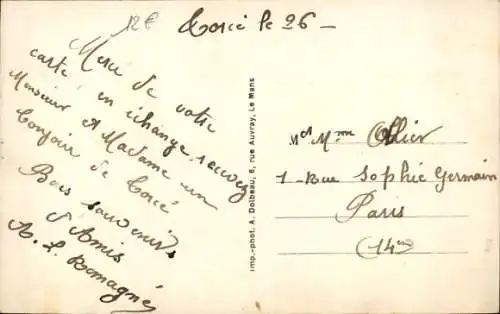 12€
Torcé le 26 –
Merci de votre
carte en échange recevez
Monsieur et Madame un
bonjour de Torcé
Bons souvenirs
d'Amis
A. L. Romagné
Imp.-phot. A. Dolbeau, 6, rue Auvray, Le Mans
M et Mme Ollier
1 Rue Sophie Germain
Paris
(14em)